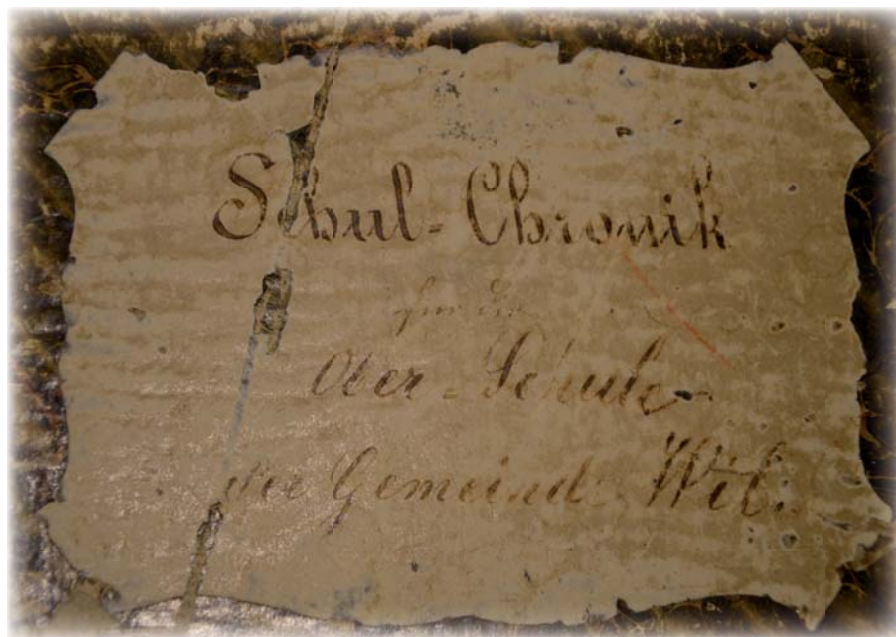 Schul-Chronik
für die
Ober-Schule
der Gemeinde Wil.